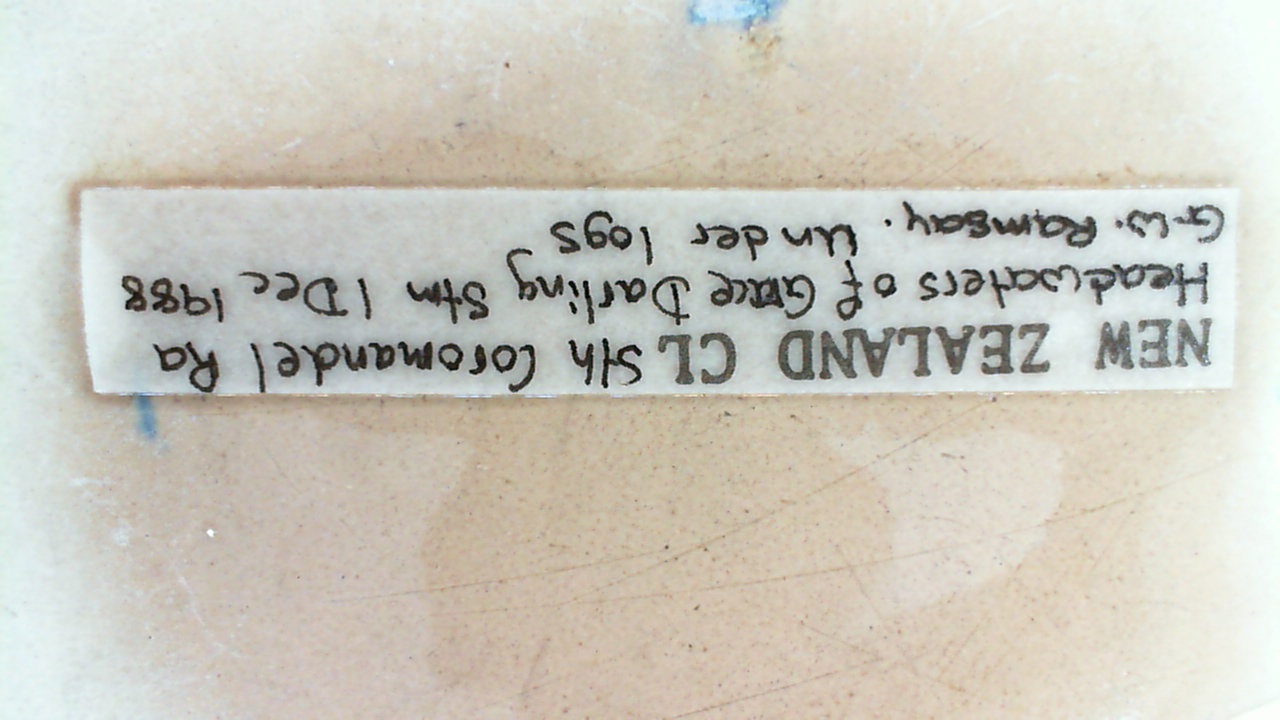 NEW ZEALAND CL Sth Coromandel Ra
Headwaters of Grace Darling Stm 1 Dec 1988
G.W. Ramsay. Under logs